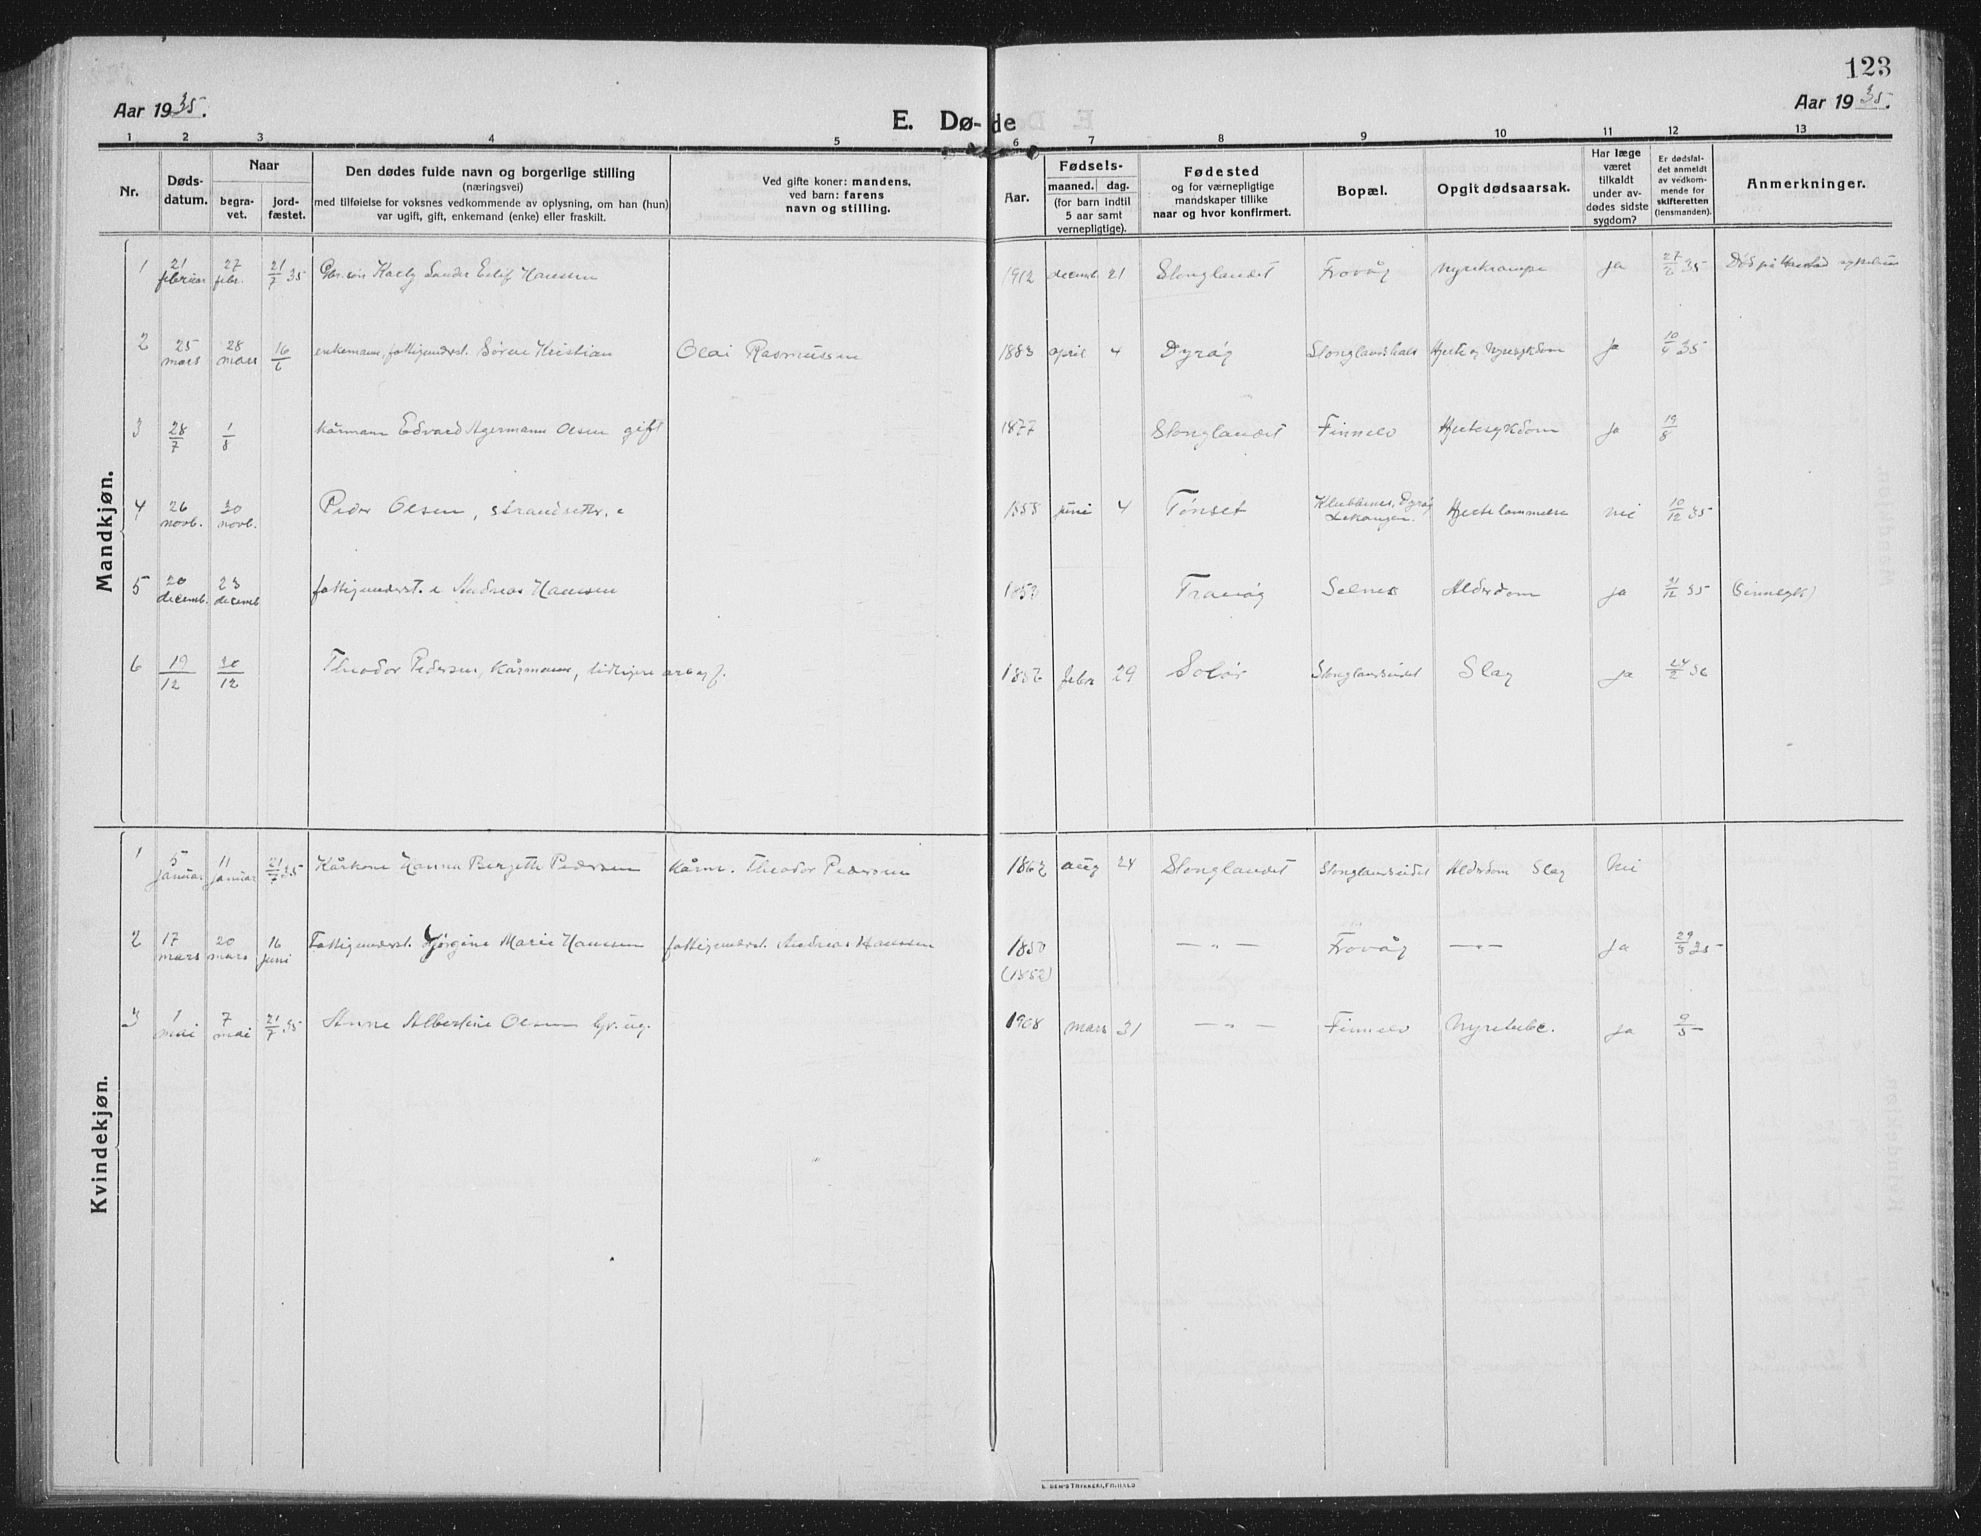 123
Aar 1935.
E. Dø-de
Aar 1935.
1 2 3 4 5 6 7 8 9 10 11 12 13
Nr.
Døds-datum.
Naar
begra-vet.
jord-fæstet.
Den dødes fulde navn og borgerlige stilling
(næringsvei)
med tilføielse for voksnes vedkommende av oplysning, om han (hun)
var ugift, gift, enkemand (enke) eller fraskilt.
Ved gifte koner: mandens,
ved barn: farens
navn og stilling.
Aar.
Fødsels-
maaned. dag.
(for barn indtil
5 aar samt
vernepligtige).
Fødested
og for værnepligtige
mandskaper tillike
naar og hvor konfirmert.
Bopæl.
Opgit dødsaarsak.
Har læge
været
tilkaldt
under av-
dødes sidste
sygdom?
Er dødsfal-
det anmeldt
av vedkom-
mende for
skifteretten
(lensmanden).
Anmerkninger.
Mandkjøn.
1 21 februar 27 febr. 21/7 35 Sander Eilif Hansen 1912 decemb. 21 Stonglandet Frovåg nyrekrampe ja 27/6 35 Død på Harstad sykehus
2 25 mars 28 mars 16/6 enkemann, fattigunderst. Sören Kristian Olai Rasmussen 1883 april 4 Dyrøy Stonglandshals Hjerte og Nyresykdom Ja 10/4 35
3 28/7 1/8 kårmann Edvard Agermann Olsen gift 1877 Stonglandet Finnelv Hjertesykdom Ja 19/8
4 26 novb. 30 novb. Peder Olsen, strandsitter, e 1855 juni 4 Tønset Klubbenes, Dyrøy Hjertelammelse nei 10/12 35
5 20 decemb. 23 decemb fattigunderst. e Andreas Hansen Tranøy Selnes Alderdom ja 31/12 35 (Sinnsyk)
6 19/12 30/12 Theodor Pedersen, kårmann, tidligere 1852 febr 29 Solör Stonglandseidet Slag ja 24/2 36
Kvindekjøn.
1 5 januar 11 januar 21/7 35 Kårkone Hanna Bergette Pedersen kårm. Theodor Pedersen 1862 aug 24 Stonglandet Stonglandseidet Alderdom Slag Nei
2 17 mars 20 mars 16 juni Fattigunderst. Jørgine Marie Hansen fattigunderst. Andreas Hansen 1850 (1852) — " — Frovåg — " — Ja 29/3 35
3 1 mai 7 mai 21/7 35 Anne Albertine Olsen ug. 1908 mars 31 — " — Finnelv Nyretub. ja 9/5
E. SEM'S TRYKKERI, FR.HALD